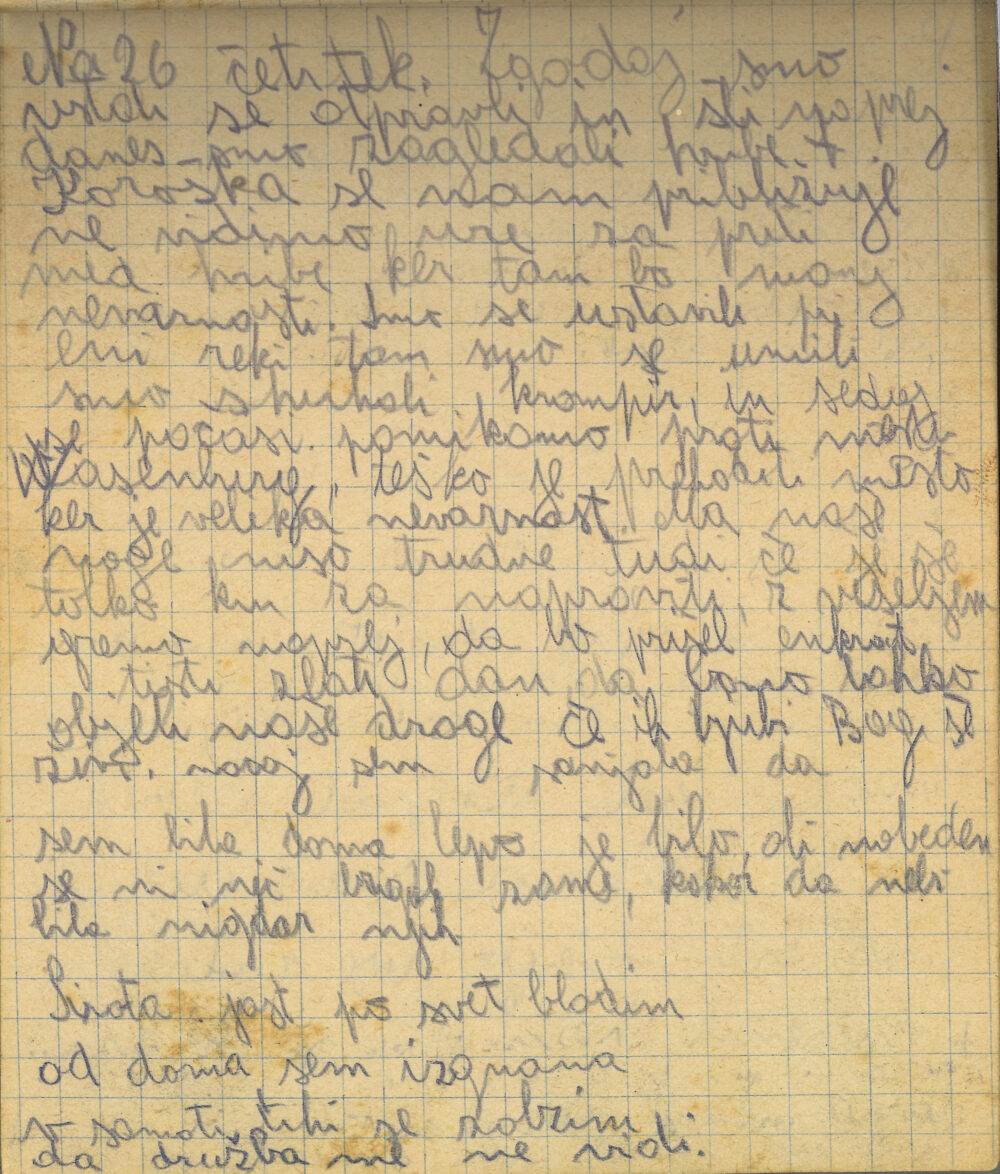 Na 26 četrtek. Zgodaj smo
vstali se otpravli in šli naprej
danes smo zagledali hribe.
Koroška se nam približuje
ne vidimo ure za priti
med hribe ker tam bo manj
nevarnosti. Smo se ustavili pri
eni reki tam smo se umili
smo skuhali krompir, in sedaj
se počasi pomikamo proti mesta
Wasenburg, teško je prehoditi mesto
ker je velika nevarnost. Ma naše
noge niso trudne tudi če je še
tolko km za napraviti, z veseljem
gremo naprej, da bo prišel enkrat
tisti zlati dan da bomo lahko
objeli naše drage če ih ljubi Bog še
živi. nocoj sem sanjala da
sem bila doma lepo je bilo, ali nobeden
se ni nič brigal zame, kakor da nebi
bila nigdar njih
Sirota jast po svet blodim
od doma sem izgnana
v samoti tihi se solzim
da družba me ne vidi.